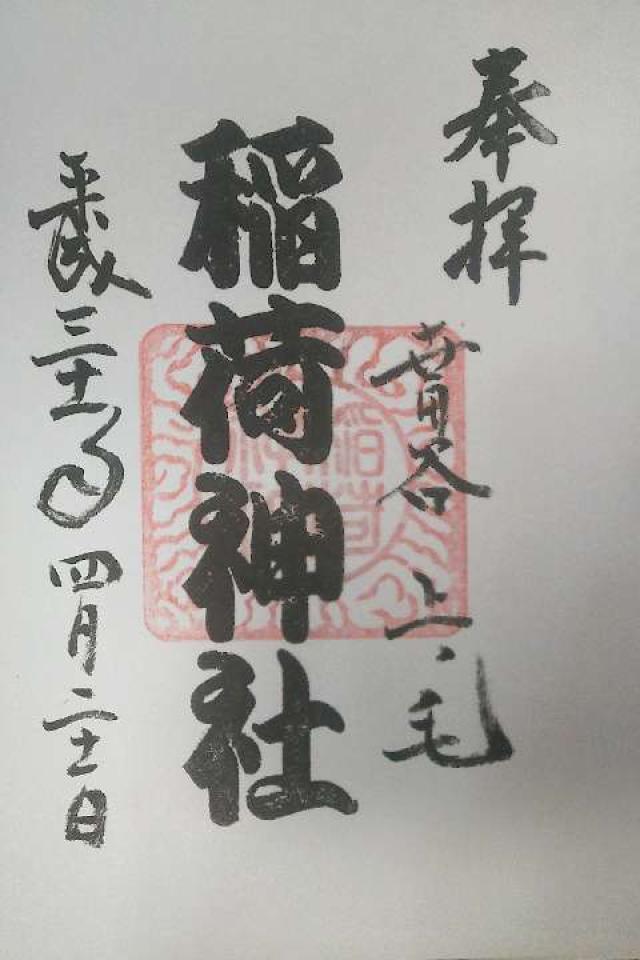 奉拝
菅谷 上、毛
稲荷神社
平成三十一年四月二十一日